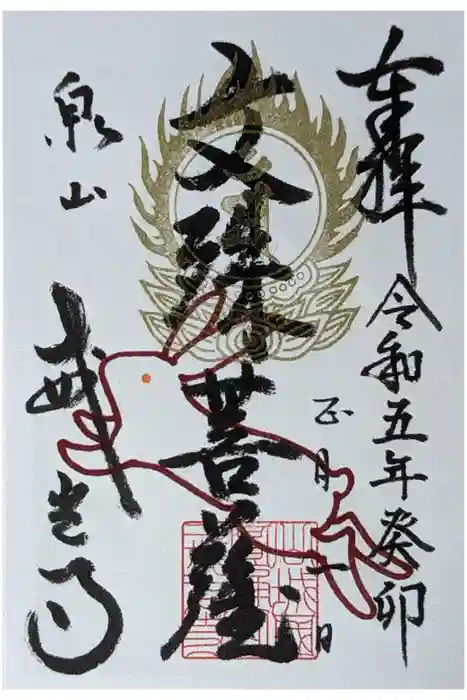 奉拝
令和五年癸卯
正月一日
文殊菩薩
泉山
戒光寺